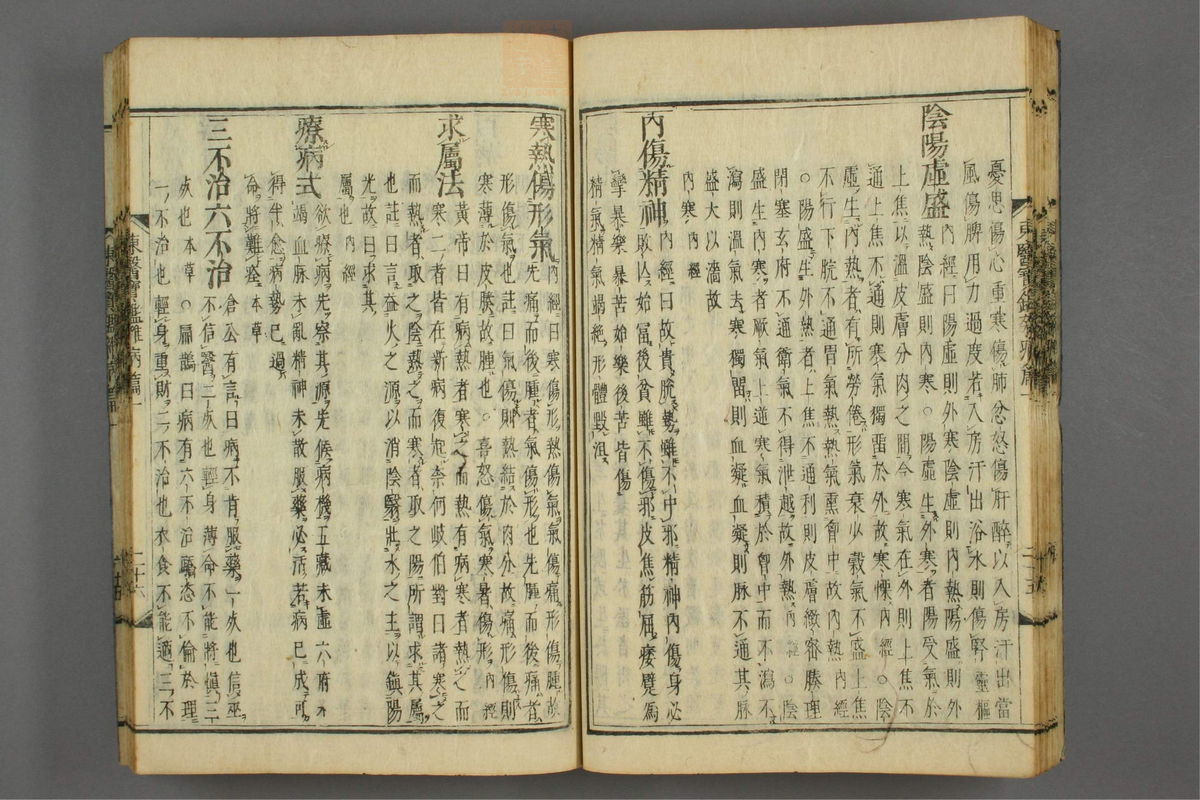 憂思傷心重寒傷肺忿怒傷肝醉以入房汗出當
風傷脾用力過度若入房汗出浴水則傷腎靈樞
陰陽虛盛內經曰陽虛則外寒陰虛則內熱陽盛則外
熱陰盛則內寒○陽虛生外寒者陽受氣於
上焦以溫皮膚分肉之間今寒氣在外則上焦不
通上焦不通則寒氣獨留於外故寒慄內經○陰
虛生內熱者有所勞倦形氣衰少穀氣不盛上焦
不行下脘不通胃氣熱熱氣熏胷中故內熱內經
○陽盛生外熱者上焦不通利則皮膚緻密腠理
閉塞玄府不通衛氣不得泄越故外熱內經○陰
盛生內寒者厥氣上逆寒氣積於胷中而不瀉不
瀉則溫氣去寒獨留則血凝血凝則脉不通其脉
盛大以濇故
內寒內經
內傷精神內經曰故貴脫勢雖不中邪精神內傷身必
敗亾始富後貧雖不傷邪皮焦筋屈痿躄爲
攣暴樂暴苦始樂後苦皆傷
精氣精氣竭絶形體毀沮
寒熱傷形氣內經曰寒傷形熱傷氣氣傷痛形傷腫故
先痛而後腫者氣傷形也先腫而後痛者
形傷氣也註曰氣傷則熱結於肉分故痛形傷則
寒薄於皮腠故腫也○喜怒傷氣寒暑傷形內經
求屬法黃帝曰有病熱者寒之而熱有病寒者熱之而
寒二者皆在新病復起奈何岐伯對曰諸寒之
而熱者取之陰熱之而寒者取之陽所謂求其屬
也註曰言益火之源以消陰翳壯水之主以鎭陽
光故曰求其
屬也內經
療病式欲療病先察其源先候病機五藏未虛六府未
竭血脉未亂精神未散服藥必活若病已成可
得半愈病勢已過
命將難全本草
三不治六不治倉公有言曰病不肯服藥一死也信巫
不信醫二死也輕身薄命不能將愼三
死也本草○扁鵲曰病有六不治驕恣不倫於理
一不治也輕身重財二不治也衣食不能適三不
東醫寶鑑雜病篇一
二十五
東醫寶鑑雜病篇一
二十六